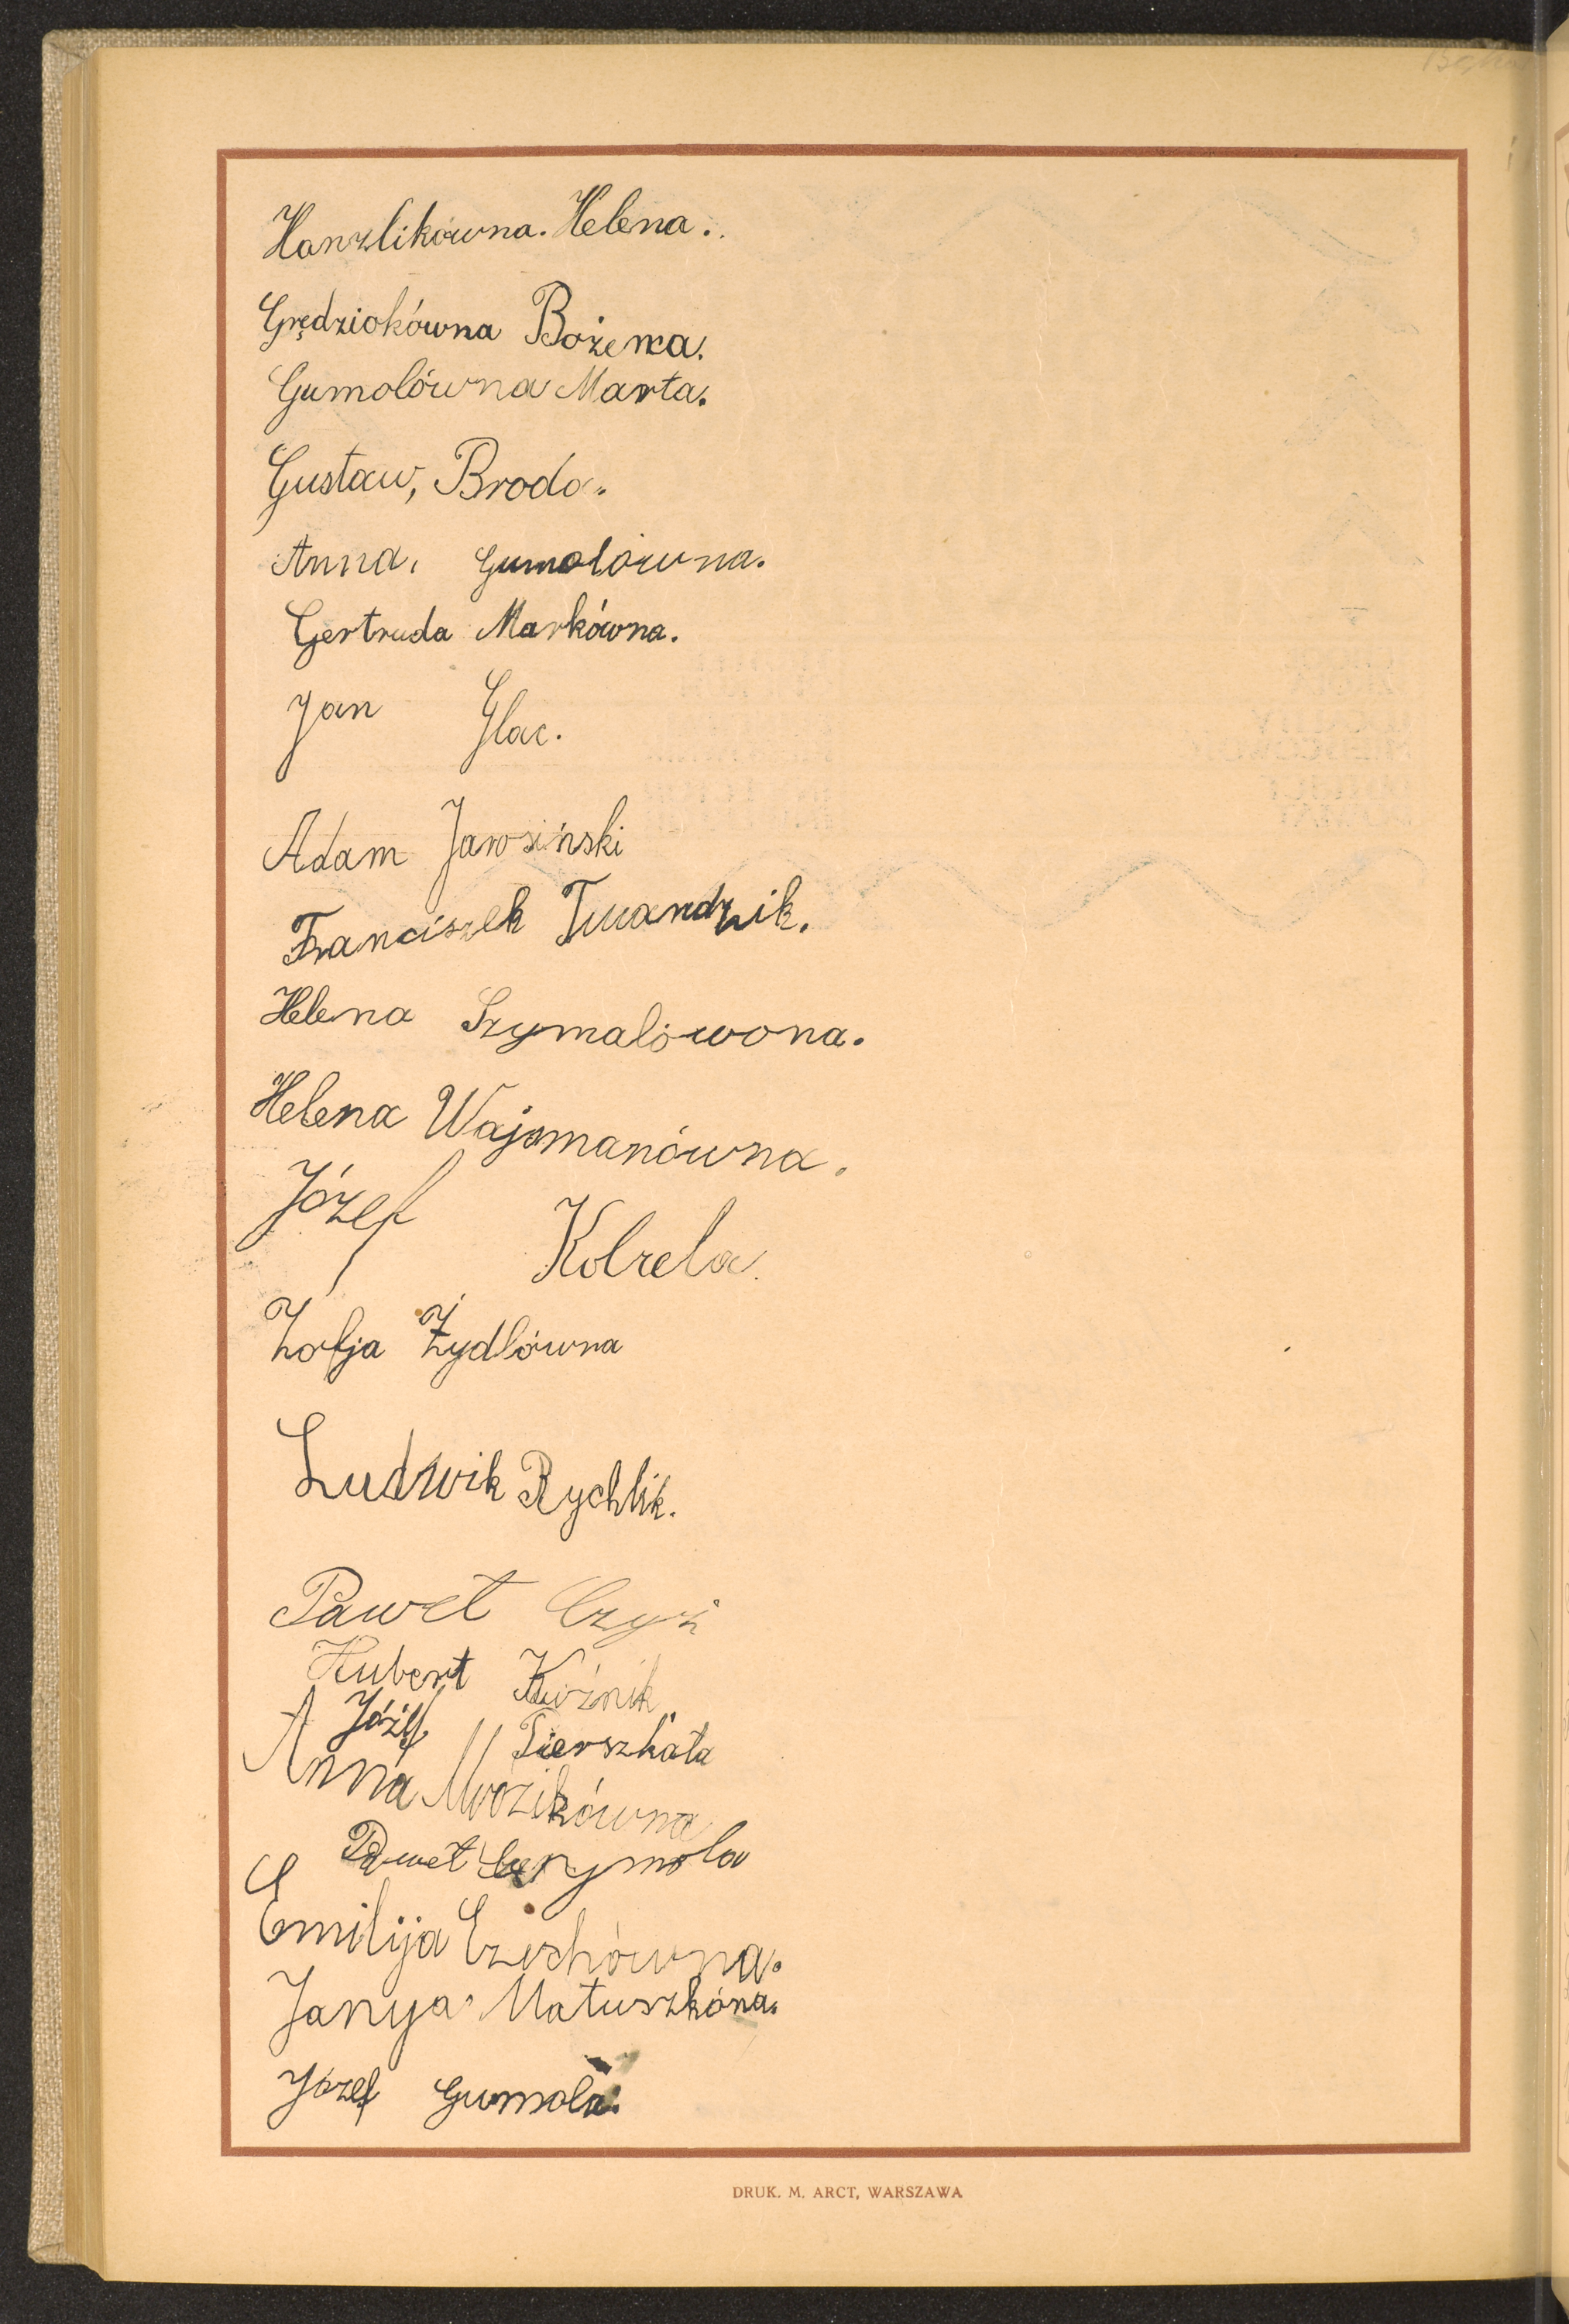 Hanzlikówna. Helena.
Grędziokówna Bożena.
Gumolówna Marta.
Gustaw, Broda.
Anna. Gumolówna.
Gertruda Markówna.
Jan Glac.
Adam Jarosiński
Franciszek Twardzik.
Helena Szymalówona.
Helena Wajsmanówna.
Józef Kolrela.
Zofja Żydlówna
Ludwik Rychlik.
Paweł Czyż
Hubert Kuźnik
Józef Pierszkała
Anna Mrozikówna
Paweł
Emilija Czechówna.
Janya Matuszkóna.
Józef Gumola.
DRUK. M. ARCT, WARSZAWA